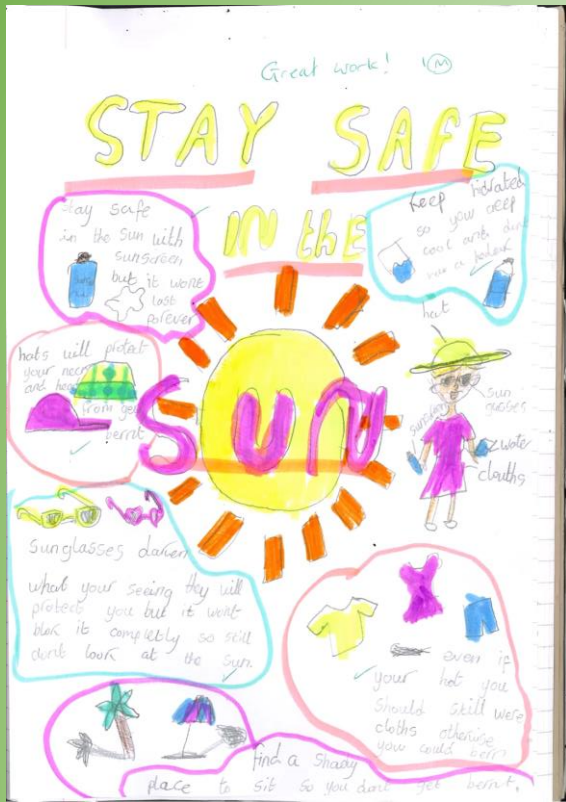 Great work! 1 M
STAY SAFE
IN the
SUN
stay safe
in the sun with
sunscreen
but it wont
last
forever
keep hidrated
so your ceep
cool and dont
hat
hats will protect
your neck
and head
from get
bernt
sun
glasses
water
clouths
sunglasses darken
what your seeing they will
protect you but it wont
blok it completly so still
dont look at the sun
even if
your hot you
should still were
cloths otherwise
you could bern
find a shady
place to sit so you dont get bernt.